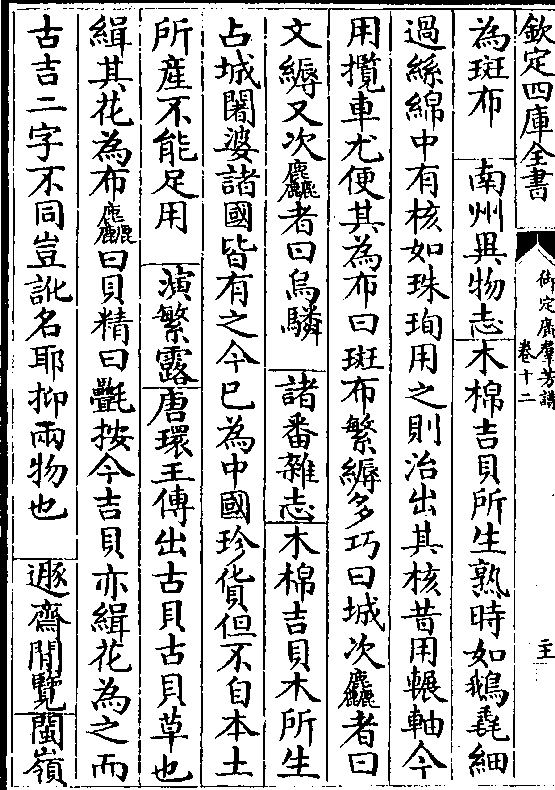 欽定四庫全書
御定廣羣芳譜
卷十二
主
為斑布　南州異物志木棉吉貝所生熟時如鵝毳細
過絲綿中有核如珠珣用之則治出其核昔用輾軸今
用攬車尤便其為布曰斑布繁縟多巧曰城次麤者曰
文縟又次麤者曰烏驎　諸番雜志木棉吉貝木所生
占城闍婆諸國皆有之今已為中國珍貨但不自本土
所產不能足用　演繁露唐環王傳出古貝古貝草也
緝其花為布麤曰貝精曰㲲按今吉貝亦緝花為之而
古吉二字不同豈訛名耶抑兩物也　遯齋閒覽閩嶺